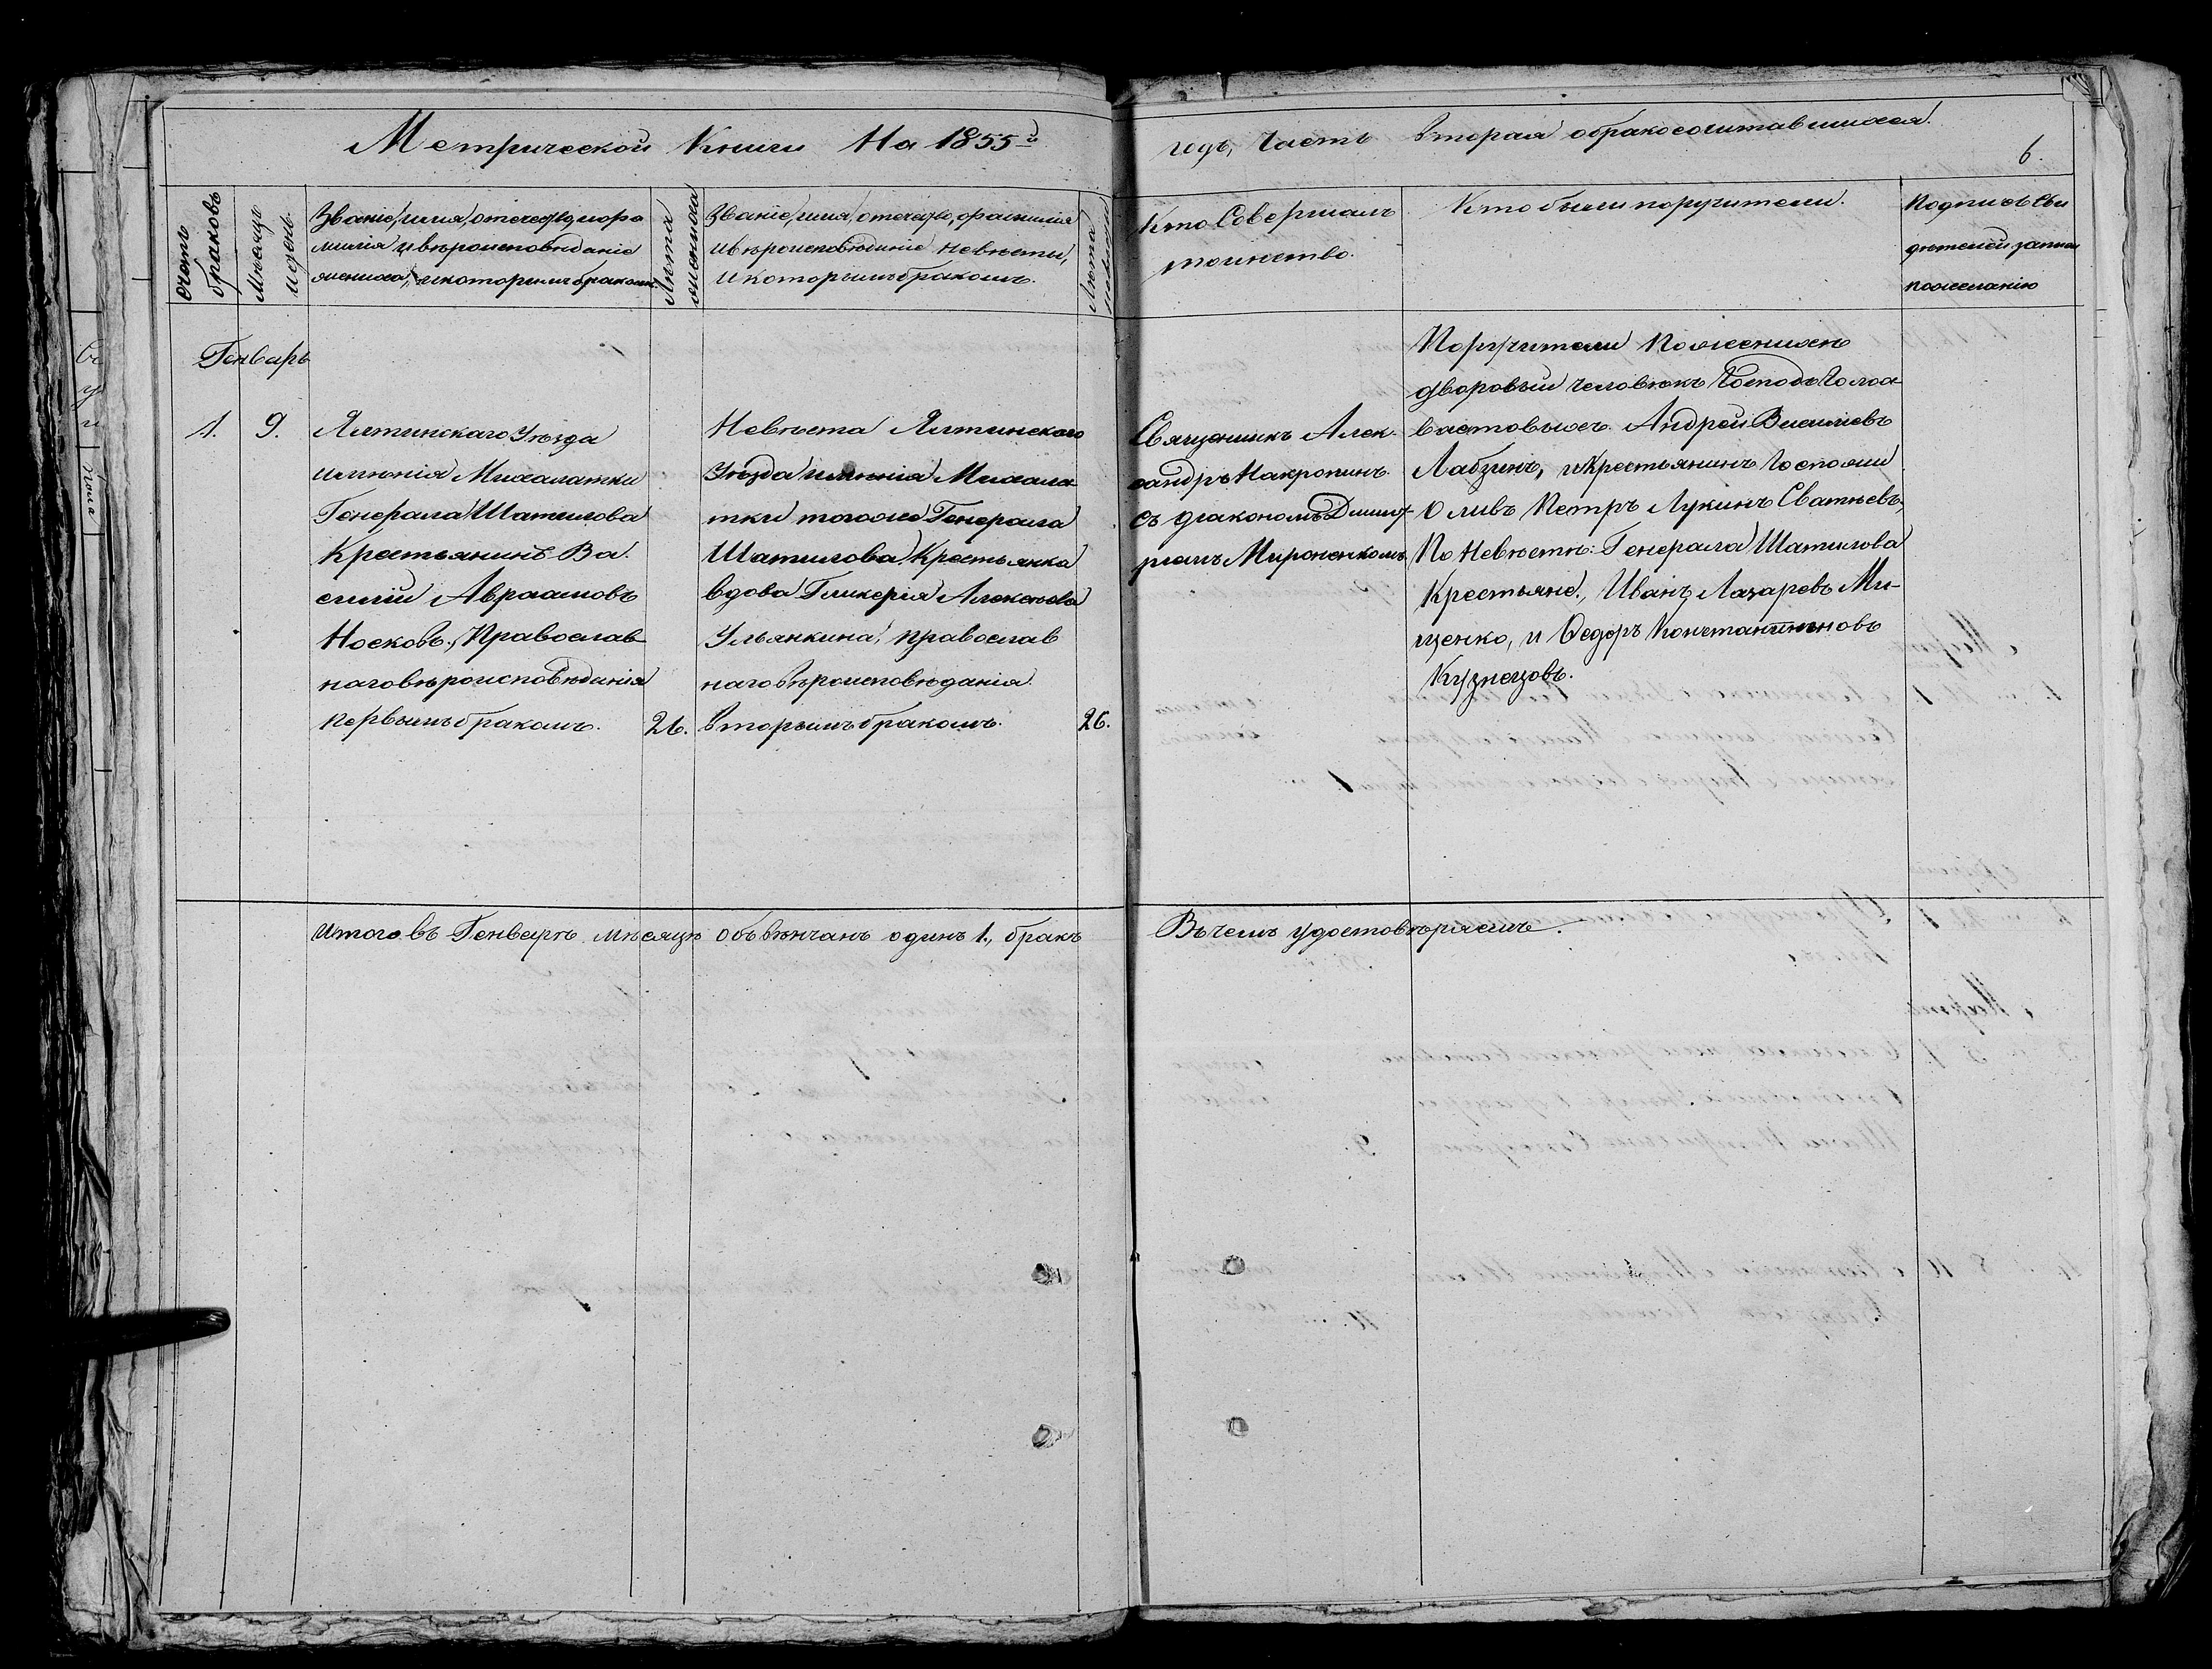 Метрической Книги На 1855й годъ, Часть вторая о бракосочитавшихся.
6.
Счетъ браковъ
Мѣсяцъ и день.
Званіе, имя, отечество, фами
милія и вѣроисповѣданіе
жениха, и которымъ бракомъ.
Лѣта жениха
Званіе, имя, отечество, фамилія
и вѣроисповѣданіе Невѣсты,
и которымъ бракомъ.
Лѣта невѣсты
Кто Совершалъ
таинство.
Кто были поручители.
Подписъ Сви
дѣтелей записи
пожеланію
Генварь
1.
9.
Ялтинскаго Уѣзда
имѣнія Михалатки
Генерала Шатилова
Крестьянинъ Ва
силій Авраамовъ
Носковъ, Православ
наго вѣроисповѣданія
первымъ бракомъ.
26.
Невѣста Ялтинскаго
Уѣзда имѣнія Михала
тки тогоже Генерала
Шатилова Крестьянка
вдова Гликерія Алексѣева
Ульянкина, православ
наго вѣроисповѣданія
вторымъ бракомъ.
26.
Священникъ Алек
сандръ Накропинъ
съ діакономъ Димит
ріемъ Мироненкомъ
Поручители По женихѣ
дворовый человѣкъ Господъ Голоа
вастовыхъ Андрей Василіевъ
Лабзинъ, и Крестьянинъ Госпожи
Оливъ Петръ Лукинъ Сватѣевъ,
По Невѣстѣ: Генерала Шатилова
Крестьяне, Иванъ Лазаревъ Ми-
щенко, и Ѳедоръ Константиновъ
Кузнецовъ.
Итого въ Генварѣ мѣсяцѣ объвѣнчанъ одинъ 1, бракъ Въ чемъ удостовѣряемъ.